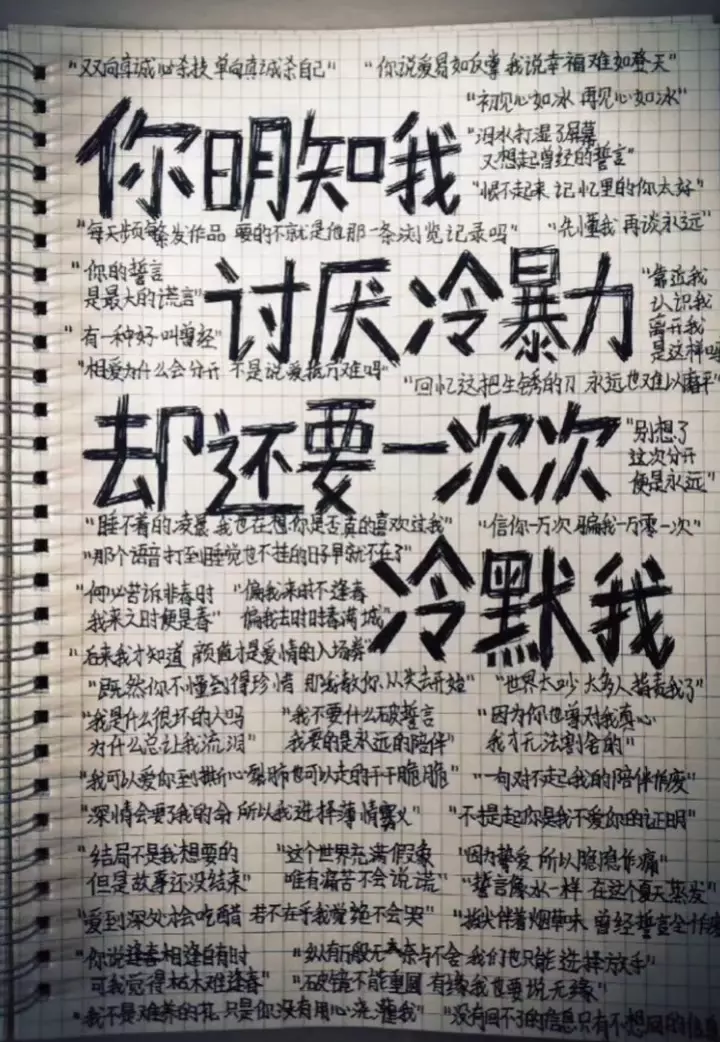 "双向真诚必杀技 单向真诚杀自己" "你说爱易如反掌 我说幸福难如登天"
"初见心如冰 再见心如冰"
你明知我
"泪水打湿了屏幕
又想起曾经的誓言"
"恨不起来 记忆里的你太好"
"每天频繁发作品 要的不就是他那一条浏览记录吗" "先懂我 再谈永远"
"你的誓言
是最大的谎言"
讨厌冷暴力
"靠近我
认识我
离开我
是这样吗
"有一种好叫曾经"
"相爱为什么会分开 不是说爱抵万难吗"
"回忆这把生锈的刀 永远也难以磨平"
却还要一次次
"别想了
这次分开
便是永远"
"睡不着的凌晨 我也在想你是否真的喜欢过我" "信你一万次 骗我一万零一次"
"那个语音打到睡觉也不挂的日子早就不在了"
冷默我
"何必苦诉非春时
我来之时便是春"
"偏我来时不逢春
偏我去时时春满城"
"后来我才知道 颜值才是爱情的入场券"
"既然你不懂到得珍惜 那我教你从失去开始" "世界太吵 太多人指责我了"
"我是什么很坏的人吗
为什么总让我流泪"
"我不要什么破誓言
我要的是永远的陪伴"
"因为你也曾对我真心
我才无法割舍的"
"我可以爱你到撕心裂肺也可以走的干干脆脆" "一句对不起我的陪伴作废"
"深情会要了我的命 所以我选择薄情寡义" "不提起你是我不爱你的证明"
"结局不是我想要的
但是故事还没结束"
"这个世界充满假象
唯有痛苦不会说谎"
"因为挚爱 所以隐隐作痛"
"誓言像水一样 在这个夏天蒸发"
"爱到深处才会吃醋 若不在乎我觉绝不会哭" "指尖伴着烟草味 曾经誓言全作
"你说逢春相逢自有时
可我觉得枯木难逢春"
"纵有万般无奈与不舍 我们也只能选择放手"
"破镜不能重圆 有缘我也要说无缘"
"我不是难养的花 只是你没有用心浇灌我" "没有回不了的信息只有不想回的信息